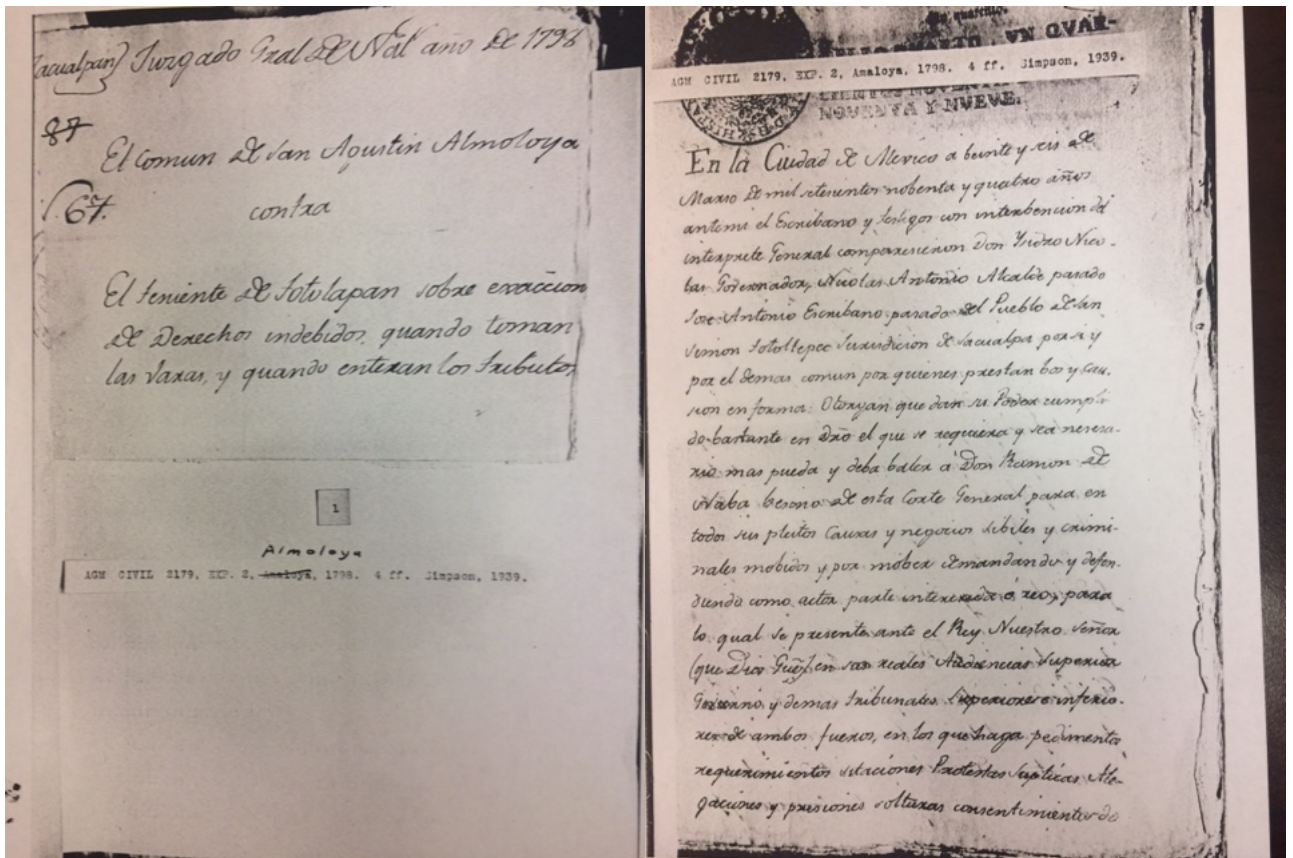 Zacualpan) Juzgado Gral de Nâl año de 1798
87
El Comun de San Agustin Almoloya
67.
contra
El teniente de totolapan sobre exaccion
de Derechos indebidos, quando toman
las Varas, y quando enteran los tributos,
1
Almoloya
AGN CIVIL 2179, EXP. 2, Amaloya, 1798. 4 ff. Simpson, 1939.
Un quartillo.
VN QVAR-
AGN CIVIL 2179, EXP. 2, Amaloya, 1798. 4 ff. Simpson, 1939.
NOVENTA Y NUEVE.
En la Ciudad de Mexico a beinte y seis de
Marso de mil setesientos nobenta y quatro años
antemi el Escribano y testigos con interbencion del
interprete General comparesieron Don Ysidro Nico-
las Governador, Nicolas Antonio Alcalde pasado
Jose Antonio Escribano pasado del Pueblo de San
Simon totoltepec Jurisdicion de Sacualpa por si y
por el demas comun por quienes prestan bos y cau-
sion en forma: Otorgan que dan su Poder cumpli
do bastante en Dro el que se requiera y sea nesesa-
rio mas pueda y deba baler á Don Ramon de
Naba besino de esta Corte General para en
todos sus pleitos Causas y negocios sibiles y crimi-
nales mobidos y por mober demandando y defen-
diendo como actor parte interesada ó reo, para
lo qual se presente ante el Rey Nuestro Señor
(que Dios Gûe) en sus reales Audiencias Superior
Govierno y demas tribunales Superiores e inferio-
res de ambos fueros, en los que haga pedimentos
requerimientos sitaciones Protestas Suplicas Ale-
gaciones y prisiones solturas consentimientos de